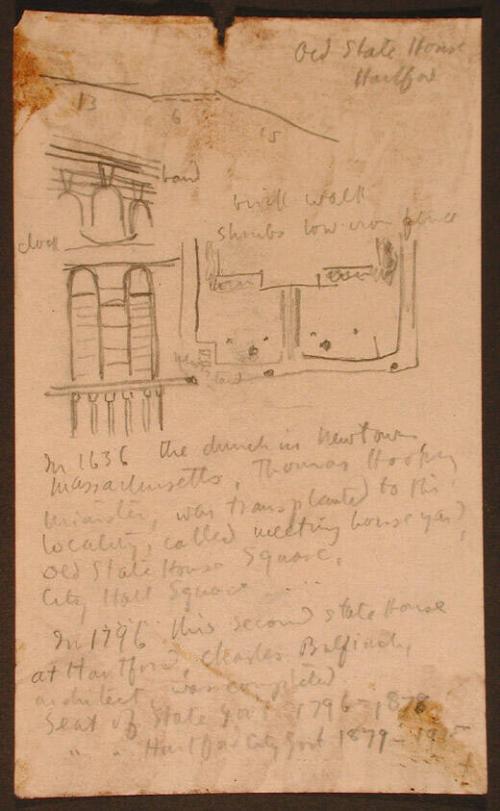 Old State House
Hartford
13
6
15
band
brick walk
shrubs low iron fence
clock
In 1636 the church in Newtown
Massachusetts, Thomas Hooker,
minister, was transplanted to this
locality, called meeting house yard,
Old State House Square,
City Hall Square
In 1796 this second State House
at Hartford, Charles Bulfinch,
architect, was completed
Seat of State Govt 1796-1878
" " Hartford City Govt 1879-1915